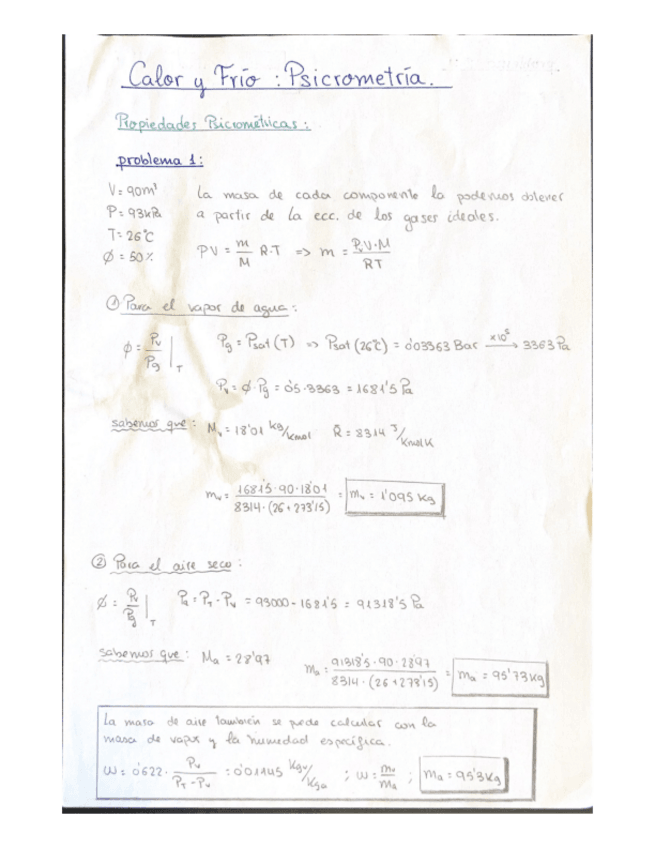 Calor y Frío : Psicrometría.
Propiedades Psicrométricas:
problema 1:
V= 90m³ La masa de cada componente la podemos obtener
P= 93kPa a partir de la ecc. de los gases ideales.
T= 26°C
Ø = 50% PV = m/M R·T => m = P·V·M/RT
① Para el vapor de agua:
Ø = Pv/Pg |T Pg = Psat (T) => Psat (26°C) = 0'03363 Bar x10⁵→ 3363 Pa
Pv = Ø·Pg = 0'5·3363 = 1681'5 Pa
sabemos que: Mv = 18'01 kg/kmol R̄ = 8314 J/kmolK
mv = 1681'5·90·18'01 / 8314·(26+273'15) = mv = 1'095 Kg
② Para el aire seco:
Ø = Pv/Pg |T Pa = PT - Pv = 93000 - 1681'5 = 91318'5 Pa
sabemos que: Ma = 28'97 ma = 91318'5·90·28'97 / 8314·(26+273'15) = ma = 95'73 Kg
La masa de aire también se puede calcular con la
masa de vapor y la humedad específica.
ω = 0'622 · Pv/PT-Pv = 0'01145 kgv/kga ; ω = mv/ma ; ma = 95'3 Kg